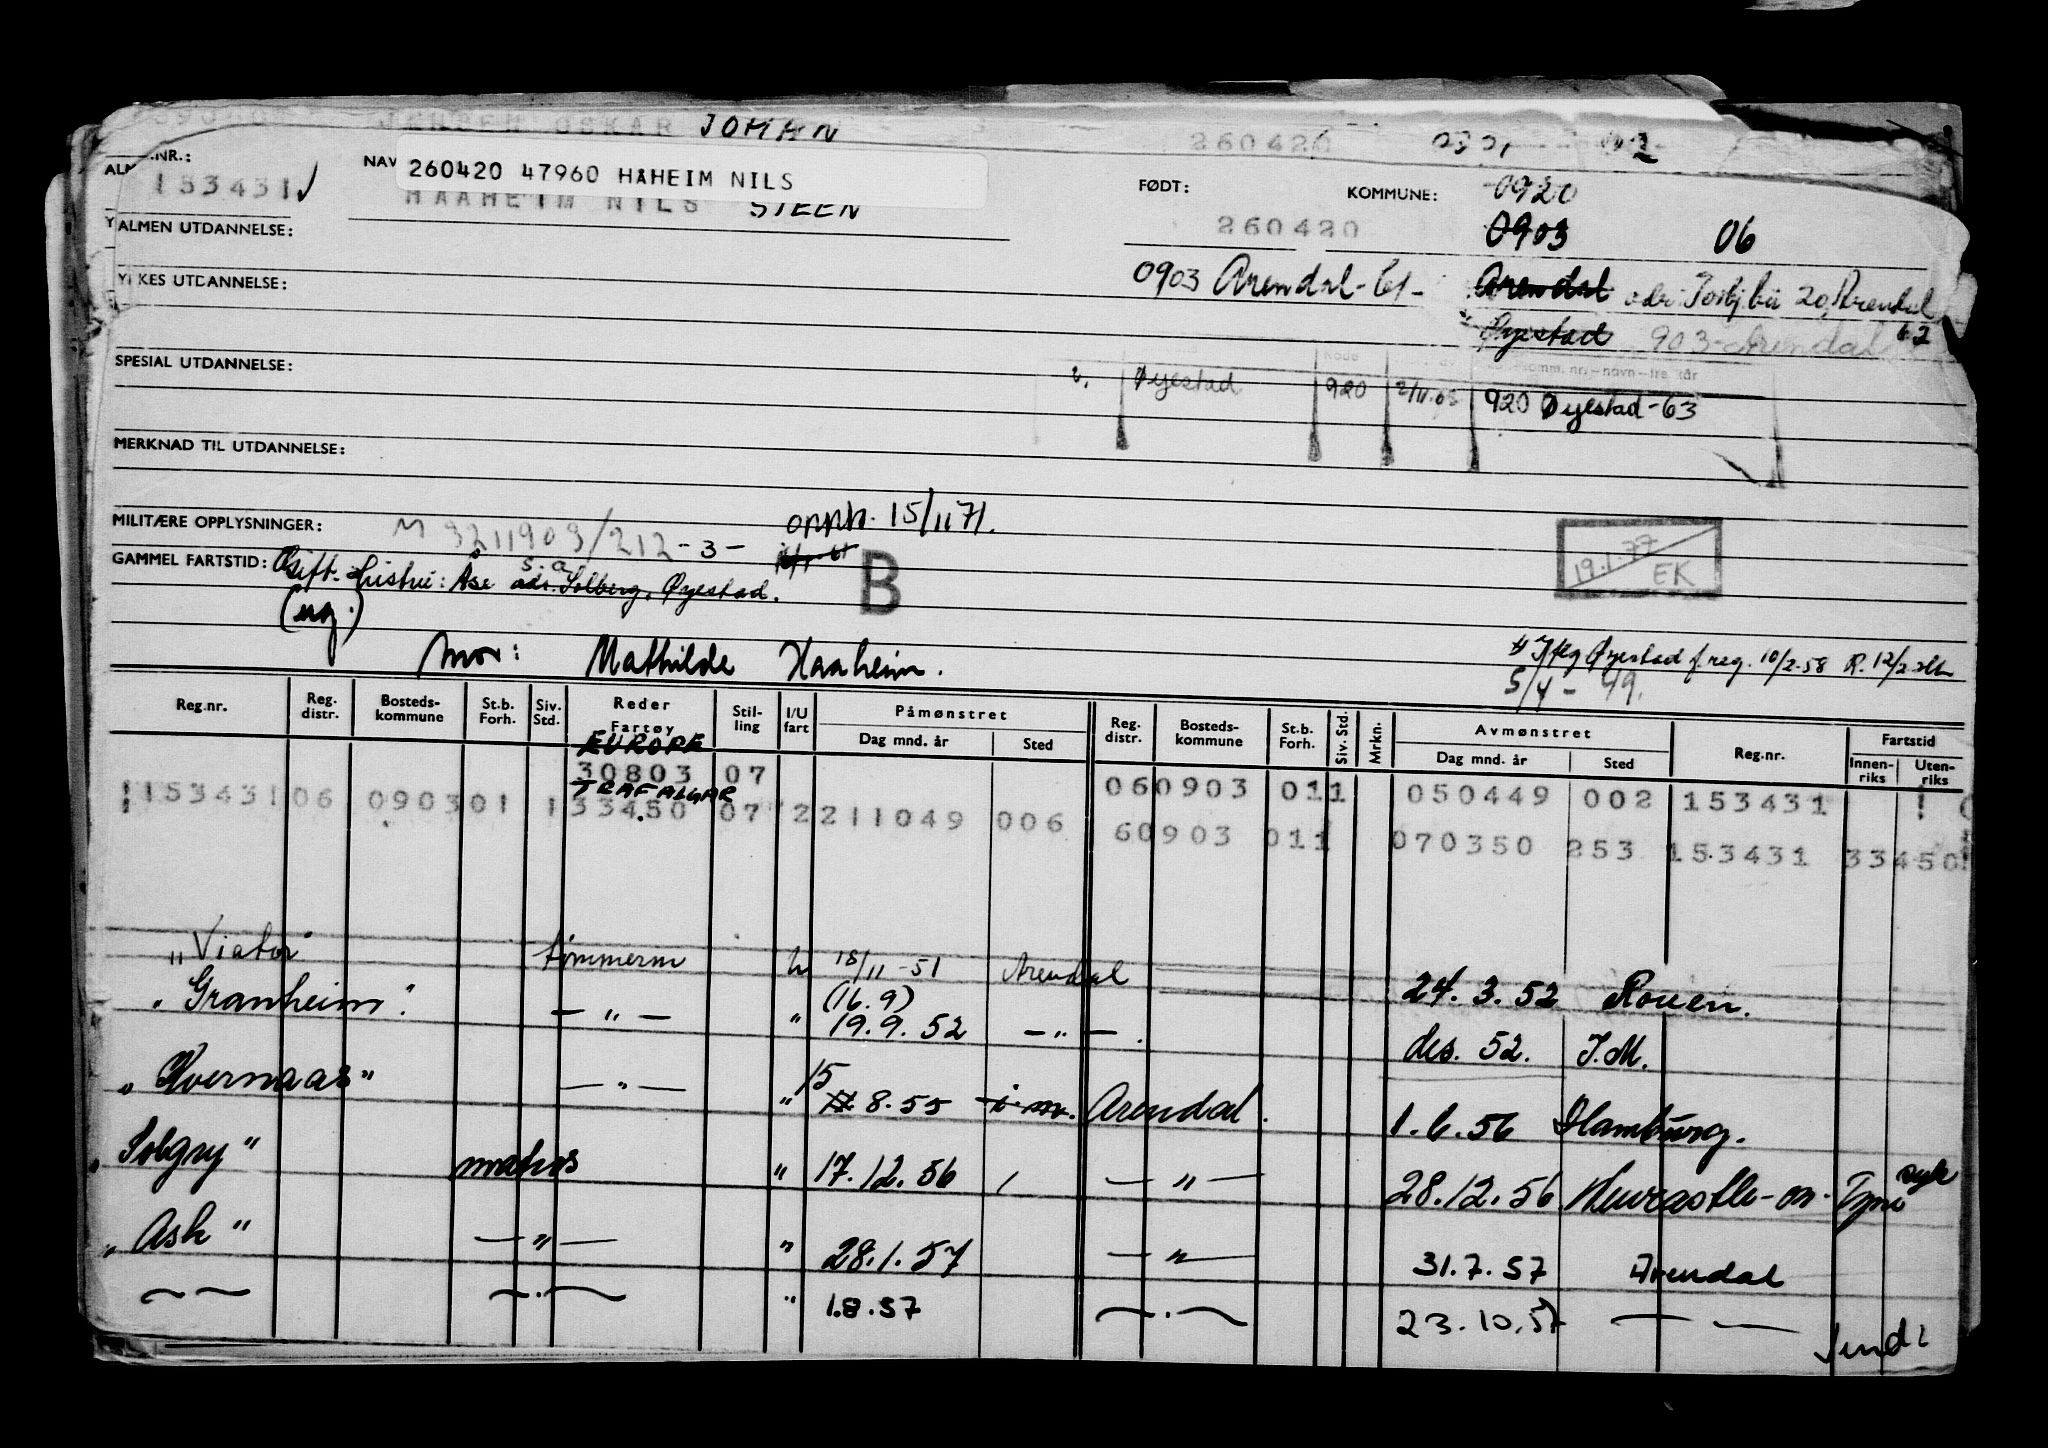 JENSEN OSKAR JOHAN 260420
ALM.NR.: NAV FØDT: KOMMUNE: 0920
260420 47960 HÅHEIM NILS
153431 HAAHEIM NILS STEEN 260420 0903 06
ALMEN UTDANNELSE:
0903 Arendal-61- Arendal adr. 20, Arendal
YRKES UTDANNELSE:
Øyestad 903-Arendal 62
SPESIAL UTDANNELSE:
Øyestad 920 2/11.65 920 Øyestad-63
MERKNAD TIL UTDANNELSE:
MILITÆRE OPPLYSNINGER: M 3211903/212-3- opph. 15/11 71.
GAMMEL FARTSTID: Gift. Hustru: Åse s.a. adr. Solberg, Øyestad. B 19.1.77 EK
Mor: Mathilde Haaheim.
Øyestad f. reg. 10/2-58 R. 12/2
5/4-49.
Reg.nr. Reg. distr. Bosteds-kommune St.b. Forh. Siv. Std. Reder Fartøy Stil-ling I/U fart Påmønstret Dag mnd. år Sted Reg. distr. Bosteds-kommune St.b. Forh. Siv. Std. Mrkn. Avmønstret Dag mnd. år Sted Reg.nr. Fartstid Innen-riks Uten-riks
EUROPE
30803 07 060903 011 050449 002 153431
TRAFALGAR
153431 06 090301 1 33450 07 2 211049 006 60903 011 070350 253 153431 33450
"Viator" tømmerm u 18/11-51 Arendal 24.3.52 Rouen.
"Granheim" — " — " (16.9) 19.9.52 — " — des. 52. I.M.
"Kvernaas" — " — " 15 8.55 i.m. Arendal. 1.6.56 Hamburg.
Solgry" matros " 17.12.56 — " — 28.12.56 Newcastle-on-Tyne syk
"Ask" — " — " 28.1.57 — " — 31.7.57 Arendal
— — — " — " 1.8.57 — " — 23.10.57 — —